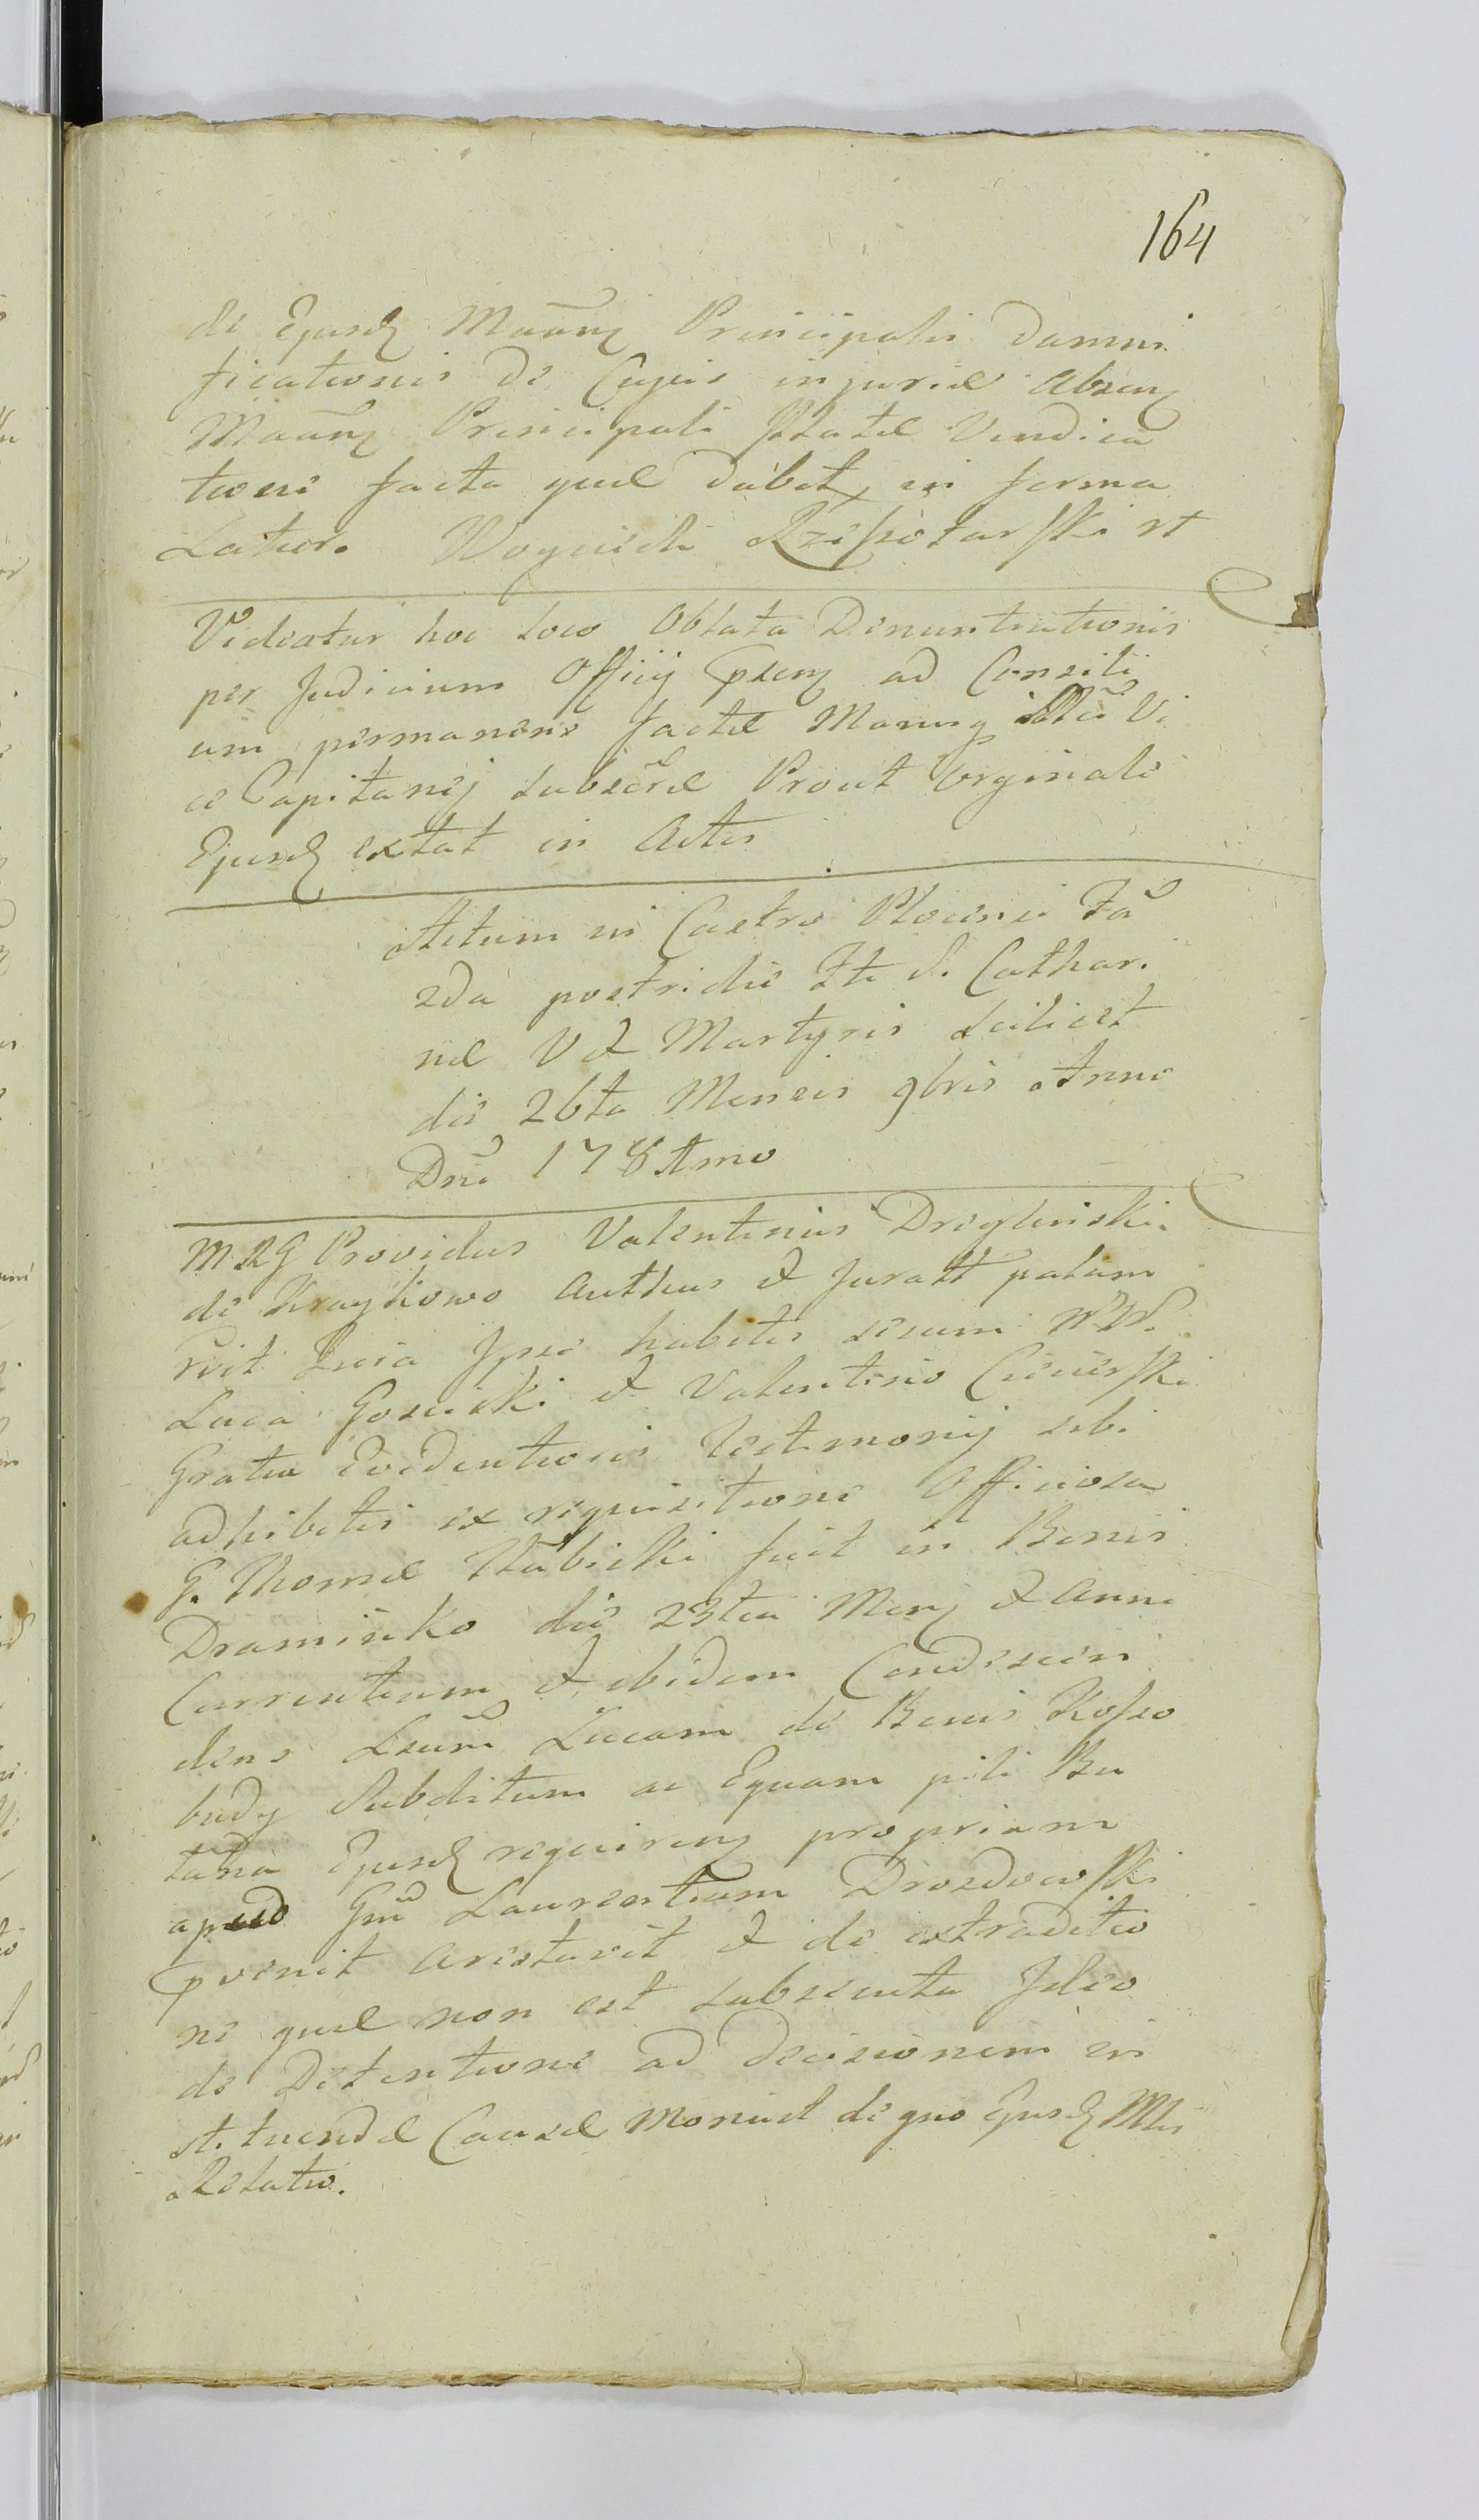 164
de Ejusd Maanz Principalis Damni
ficationis de Cujus injuriæ absenz
Maanz Principali Illatæ Vindica
tione facta quæ dabit in forma
Latior. Woyciech Rzeszotarski
Videatur hoc loco Oblata Denuntiationis
per Judicium Officij ad Consili
um permanens factæ Manu Vi
ce Capitanej subscræ Prout Orginale
Ejusd extat in Actis
Actum in Castro Plocensi Fa
2da postridie Fti S. Cathari
næ V & Martyris scilicet
die 26ta Mensis 9bris Anno
Dni 178
M R G Providus Valentinus Dreglinski
de Kraykowo Authus & Juratt palam
rvit Quia Ipse habitis secum
Luca Gosciski & Valentino Ciecierski
Gratia Evidentioris Testimonij sibi
adhibitis ex requisitione Officiosa
G. Thomæ fuit in Bonis
Draminko die 23tia Menz & Anni
Currentium & ibidem Condescen
dens Lucam de Bonis Kosso
budy Subditum ac Equam pili Bu
Ejusd requirenz propriam
apud Gnu Laurentium Drozdowski
pvenit arestavit & de extraditio
ne quæ non est subsecuta Ideo
de Detentione ad decisionem in
stituendæ Causæ Monuit de quo Ejusd Mlis
Relatio.